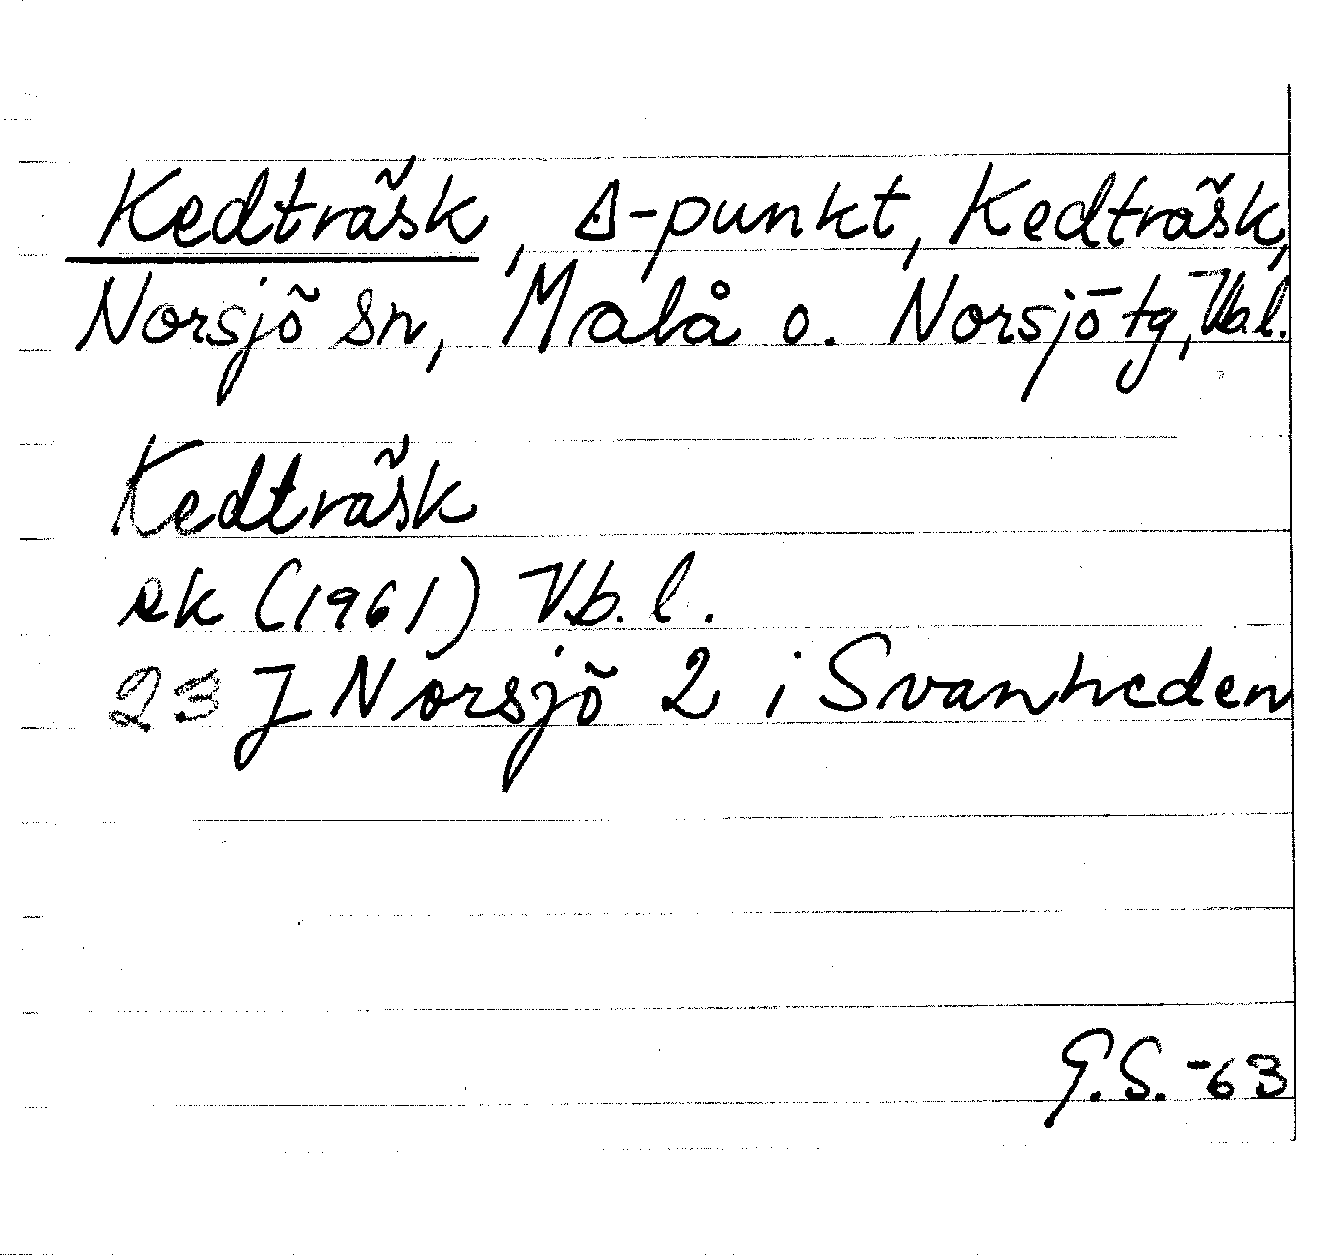 Kedträsk, Δ-punkt, Kedträsk,
Norsjö sn, Malå o. Norsjö tg, Vb.l.
Kedträsk
ek (1961) Vb. l.
23 J Norsjö 2 i Svanheden
G.S. -63